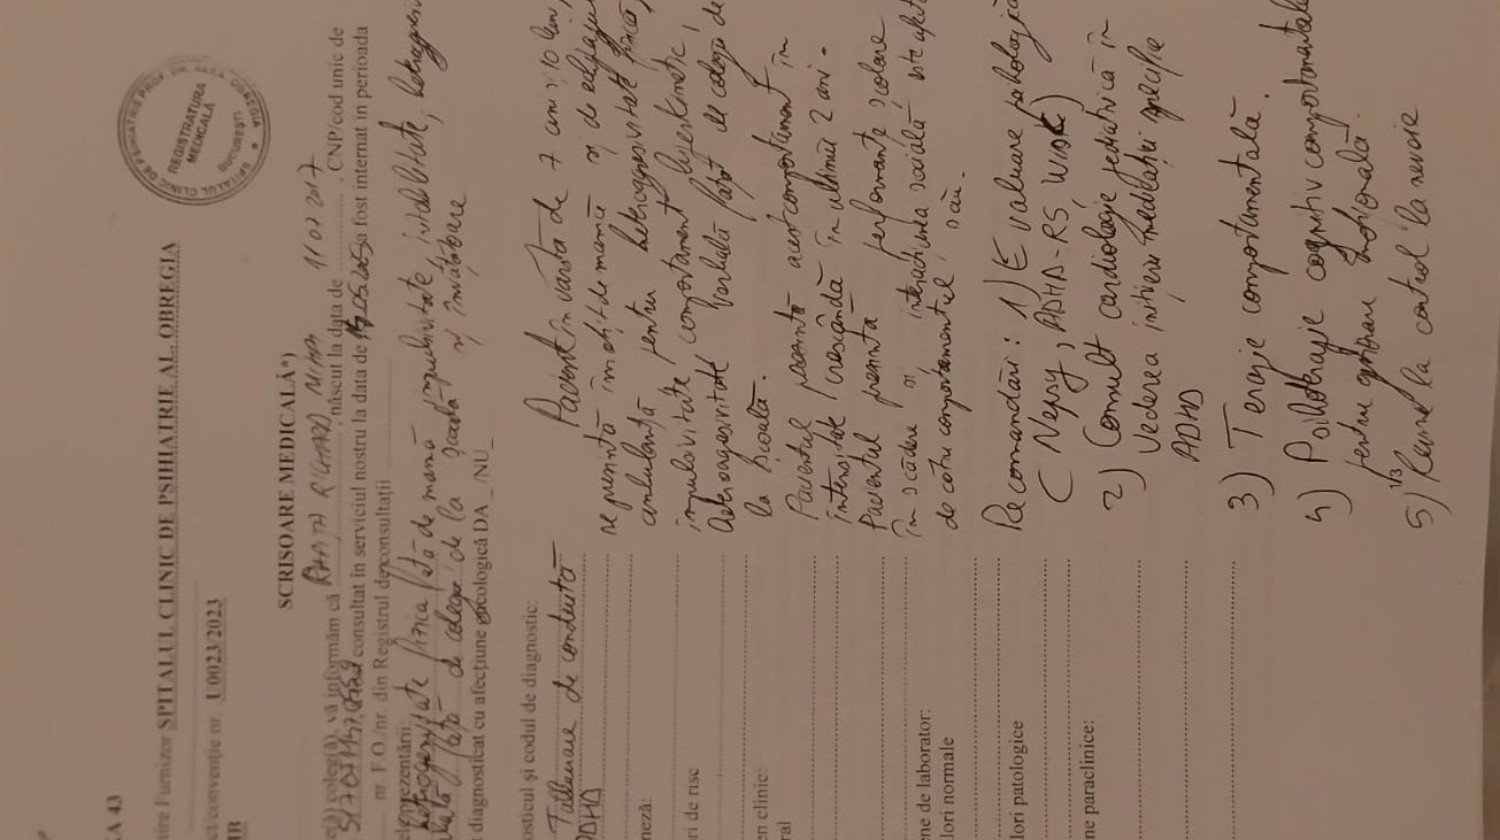 A 43
tre Furnizor SPITALUL CLINIC DE PSIHIATRIE AL. OBREGIA
ct/convenţie nr. U0023/2023
SPITALUL CLINIC DE PSIHIATRIE PROF. DR. ALEX. OBREGIA
BUCUREŞTI
REGISTRATURA
MEDICALĂ
SCRISOARE MEDICALĂ*)
coleg(ă), vă informăm că născut la data de 11 07 2017, CNP/cod unic de
consultat în serviciul nostru la data de a fost internat in perioada
nr. F.O./nr. din Registrul de consultaţii
prezentării: heteroagresivitate fizica față de mamă, impulsivitate, iritabilitate,
față de colegii de la școală și învățătoare
diagnosticat cu afecţiune oncologică DA _ /NU_
osticul şi codul de diagnostic:
Tulburare de conduită
ADHD
neză:
ri de risc
en clinic:
ral
ne de laborator:
lori normale
lori patologice
ne paraclinice:
Pacient în vârstă de 7 ani și 10 luni,
se prezintă însoțit de mamă și de
ambulanță pentru heteroagresivitate fizică,
impulsivitate, comportament hiperkinetic,
verbală față de colegii de
la școală.
Pacientul prezintă acest comportament în
intensitate crescândă în ultimii 2 ani.
Pacientul prezintă performanțe școlare
în scădere și interacțiunea socială este
de către comportamentul său.
Recomandări: 1) Evaluare psihologică
( Nepsy, ADHD-RS, )
2) Consult cardiologie pediatrică în
vederea inițierii medicației specifice
ADHD
3) Terapie comportamentală.
4) Psihoterapie cognitiv comportamentală
pentru gestionare emoțională.
1/3
5) Revine la control la nevoie